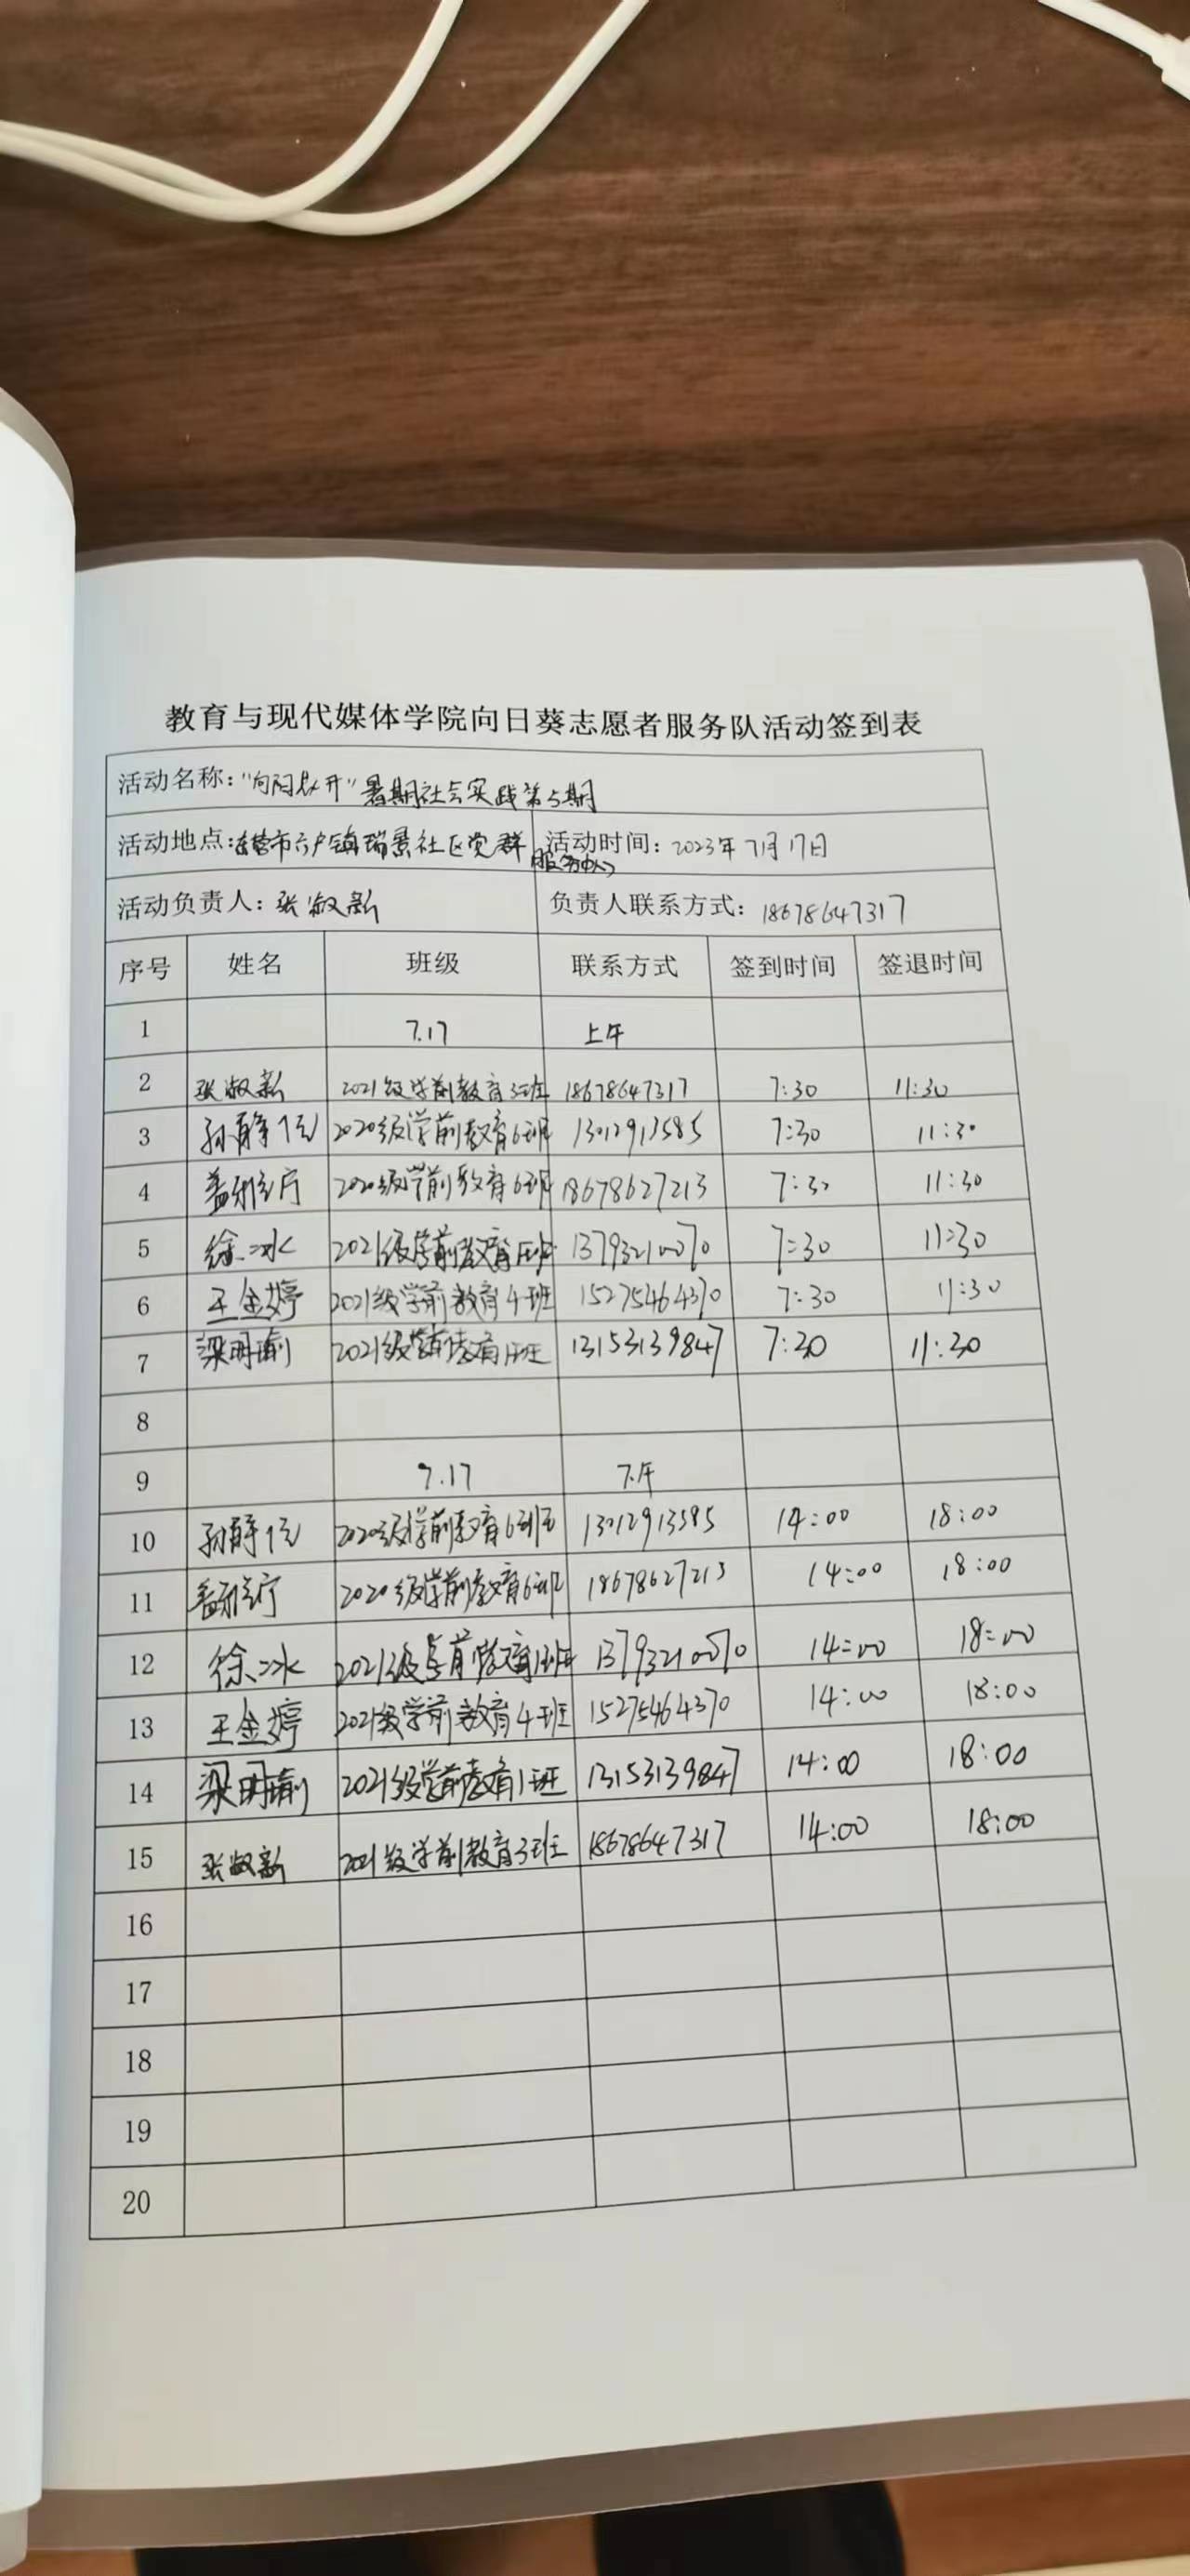 教育与现代媒体学院向日葵志愿者服务队活动签到表
活动名称："向阳 开"暑期社会实践第5期
活动地点：东营市六户镇瑞景社区党群服务中心 活动时间：2023年7月17日
活动负责人：张淑新 负责人联系方式：18678647317
序号 姓名 班级 联系方式 签到时间 签退时间
1 7.17 上午
2 张淑新 2021级学前教育3班 18678647317 7:30 11:30
3 孙静 2020级学前教育6班 13012913585 7:30 11:30
4 盖 2020级学前教育6班 18678627213 7:30 11:30
5 徐冰 2021级学前教育1班 13793210070 7:30 11:30
6 王金婷 2021级学前教育4班 15275464370 7:30 11:30
7 梁明瑜 2021级学前教育1班 13153139847 7:30 11:30
8
9 7.17 下午
10 孙静 2020级学前教育6班 13012913585 14:00 18:00
11 盖 2020级学前教育6班 18678627213 14:00 18:00
12 徐冰 2021级学前教育1班 13793210070 14:00 18:00
13 王金婷 2021级学前教育4班 15275464370 14:00 18:00
14 梁明瑜 2021级学前教育1班 13153139847 14:00 18:00
15 张淑新 2021级学前教育3班 18678647317 14:00 18:00
16
17
18
19
20